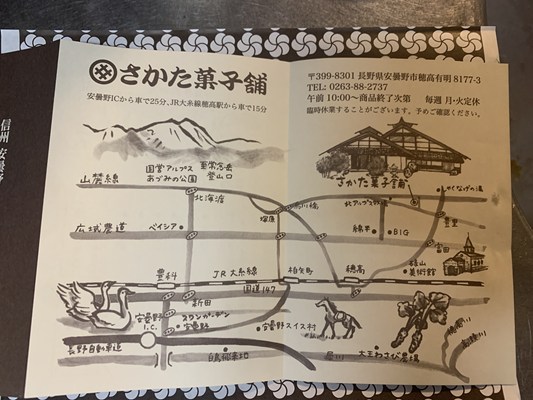 さかた菓子舗
安曇野ICから車で25分、JR大糸線穂高駅から車で15分
〒399-8301 長野県安曇野市穂高有明 8177-3
TEL: 0263-88-2737
午前 10:00〜商品終了次第　毎週 月・火定休
臨時休業することがございます。予めご確認ください。
信州 安曇野
国営アルプス
あづみの公園
常念岳
登山口
山麓線
さかた菓子舗
しゃくなげの湯
北海渡
塚原
烏川橋
豊里
広域農道
ベイシア
BIG
富田
碌山
美術館
豊科
JR大糸線
柏矢町
穂高
国道147
新田
安曇野
I.C.
スワンガーデン
安曇野
安曇野スイス村
長野自動車道
白鳥飛来地
犀川
大王わさび農場